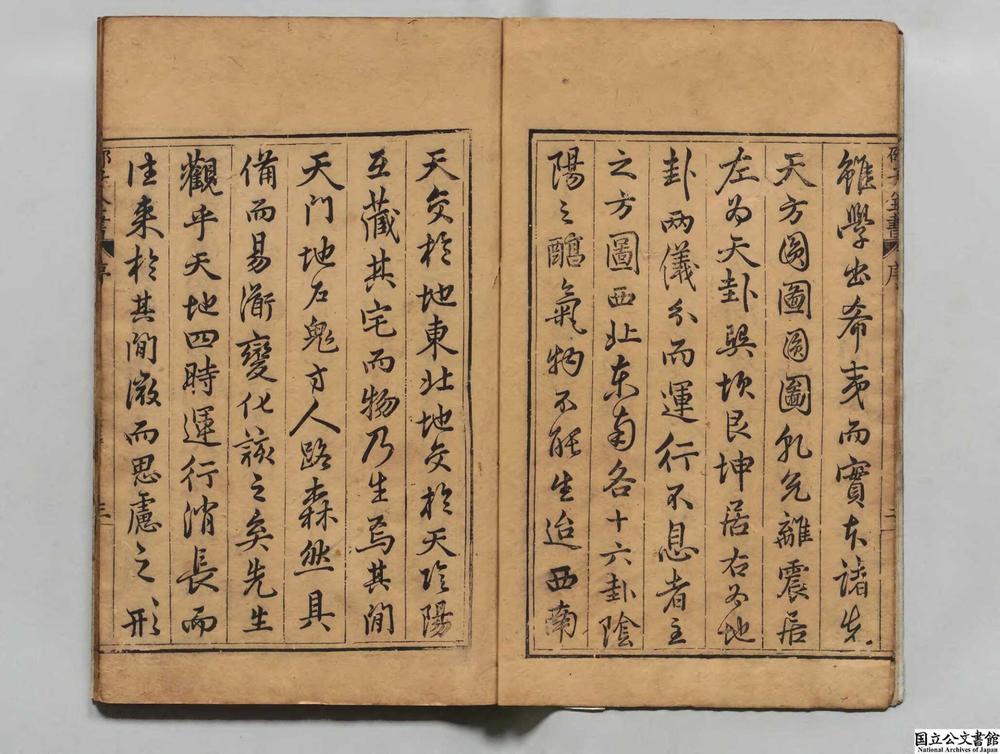 雖學出希夷而實本諸先
天方圓圖圓圖乾兌離震居
左為天卦巽坎艮坤居右為地
卦兩儀分而運行不息者主
之方圖西北東南各十六卦陰
陽之氣物不能生迨西南
天交於地東北地交於天陰陽
互藏其宅而物乃生焉其間
天門地戶鬼方人路森然具
備而易漸變化該之矣先生
觀乎天地四時運行消長而
往來於其間激而思慮之形
邵子全書
序
二
三
国立公文書館
National Archives of Japan